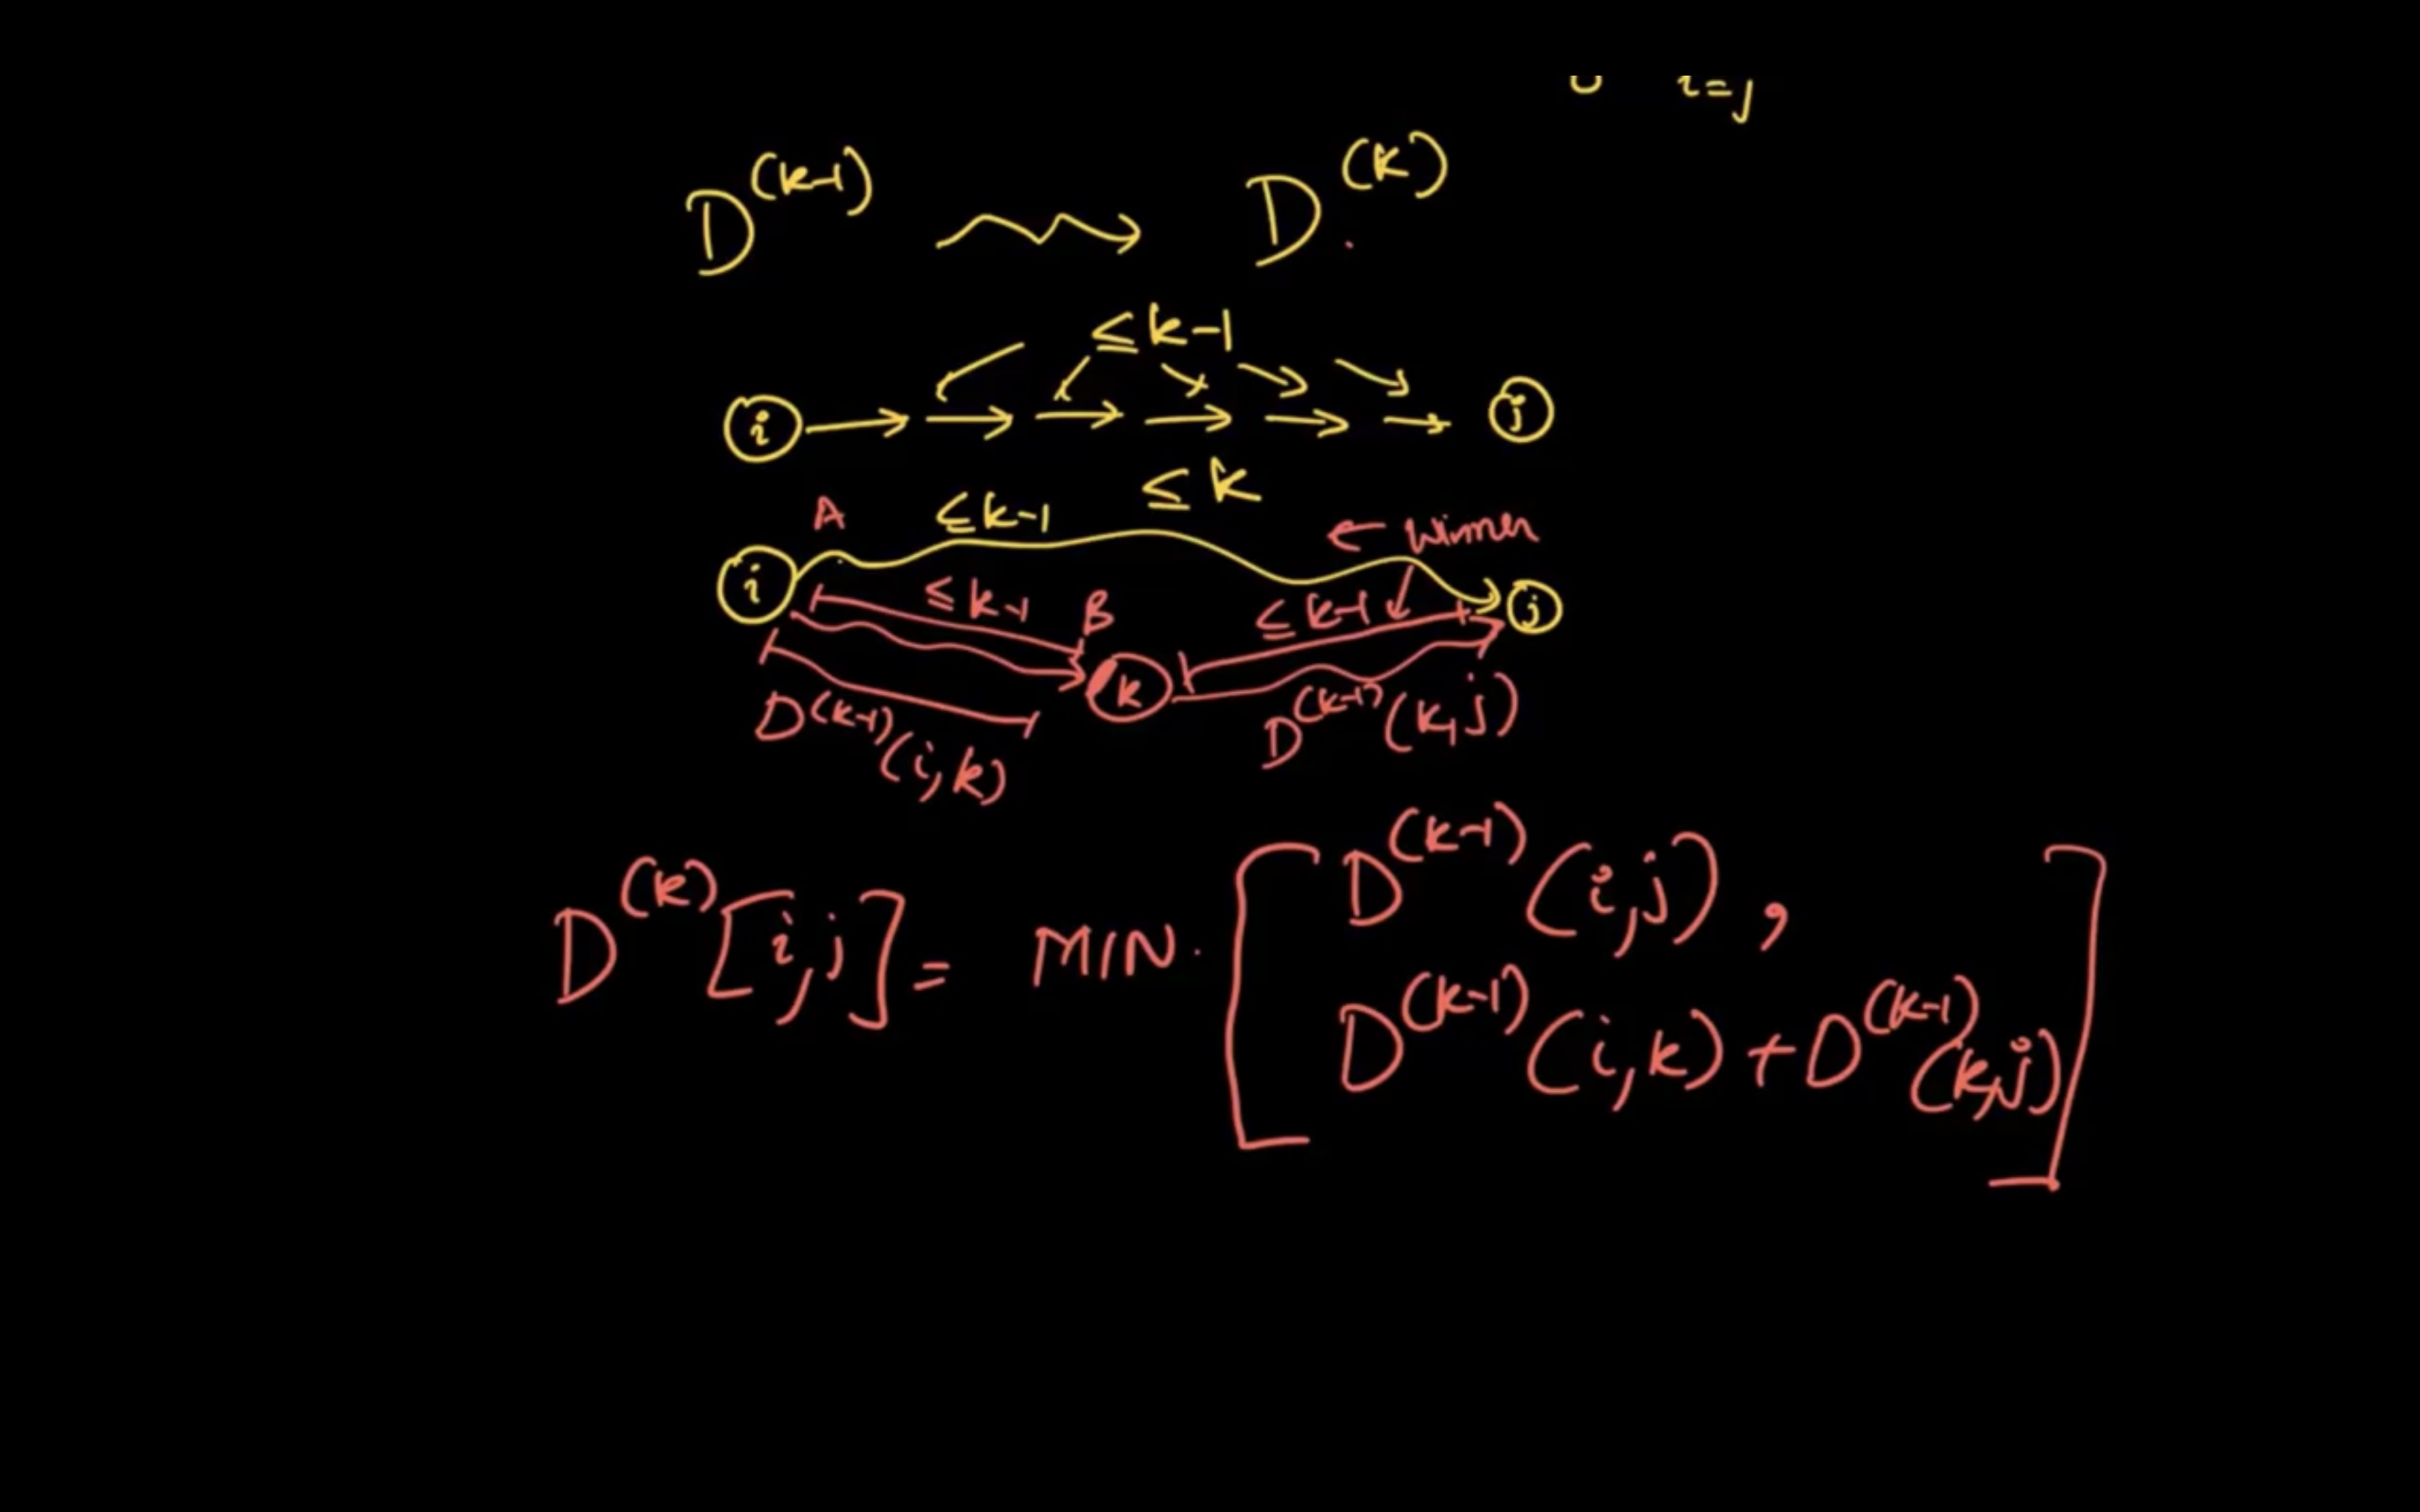 0 i=j
D^(k-1) D^(k)
≤k-1
i j
≤k
A ≤k-1 ← Winner
i ≤k-1 B ≤k-1 j
k
D^(k-1)(i,k) D^(k-1)(k,j)
D^(k)[i,j] = MIN. [ D^(k-1)(i,j),
D^(k-1)(i,k) + D^(k-1)(k,j) ]